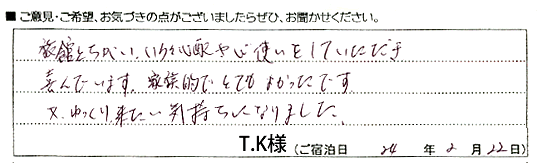 ■ご意見・ご希望、お気づきの点がございましたらぜひ、お聞かせください。
旅館とちがい、いろいろ心配や心使いをしていただき
喜んでいます。家族的でとてもよかったです
又、ゆっくり来たい気持ちになりました。
T.K様 (ご宿泊日 24 年 2 月 22 日)